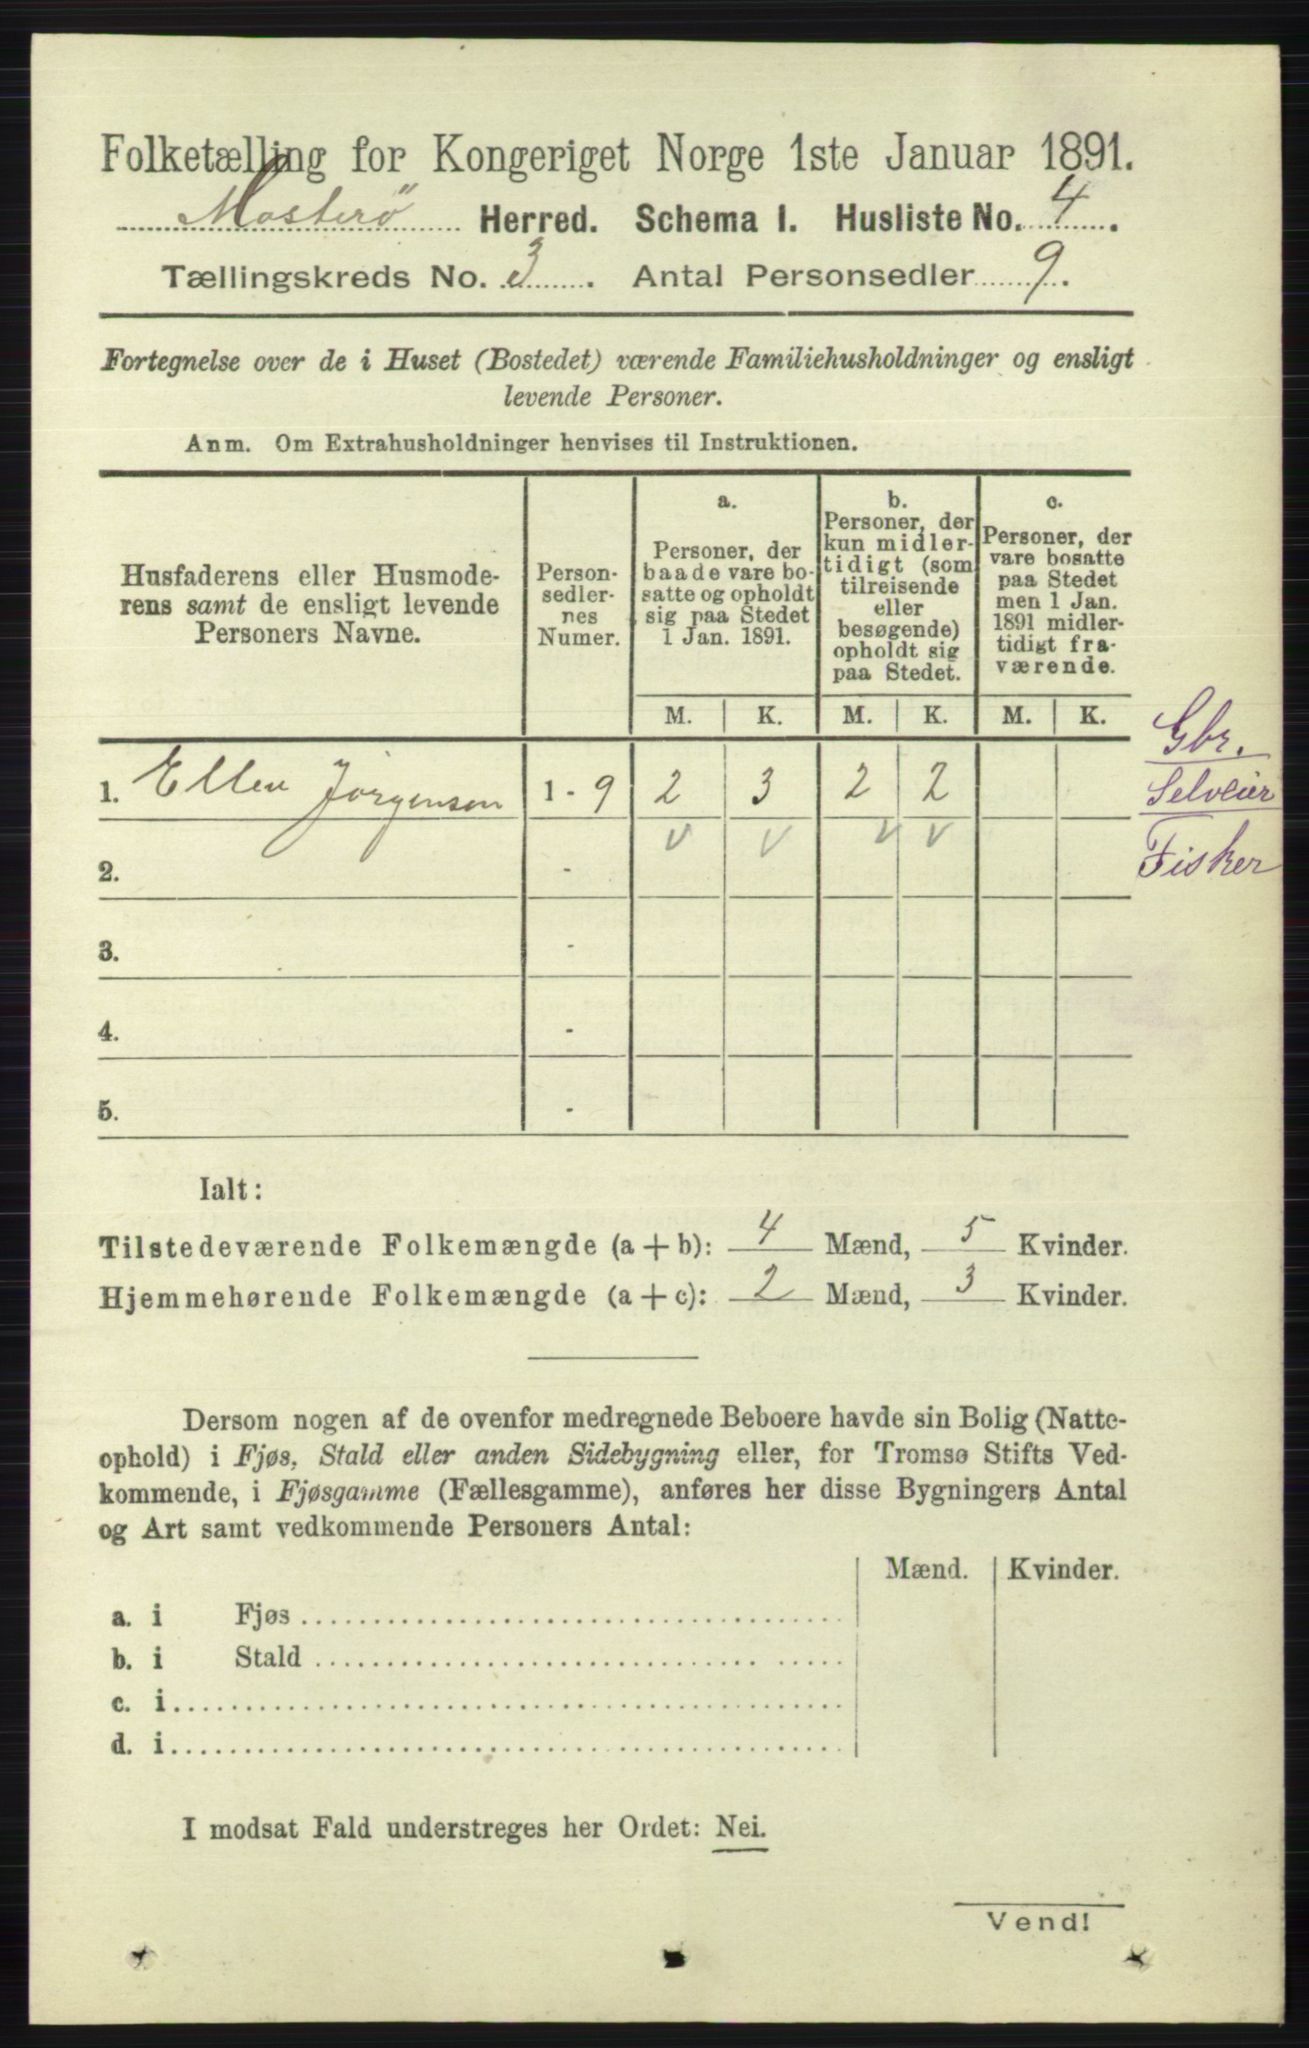 Folketælling for Kongeriget Norge 1ste Januar 1891.
Mosterö Herred. Schema 1. Husliste No. 4.
Tællingskreds No. 3. Antal Personsedler 9.
Fortegnelse over de i Huset (Bostedet) værende Familiehusholdninger og ensligt
levende Personer.
Anm. Om Extrahusholdninger henvises til Instruktionen.
Husfaderens eller Husmode-
rens samt de ensligt levende
Personers Navne.
Person-
sedler-
nes
Numer.
a.
Personer, der
baade vare bo-
satte og opholdt
sig paa Stedet
1 Jan. 1891.
b.
Personer, der
kun midler-
tidigt (som
tilreisende
eller
besøgende)
opholdt sig
paa Stedet.
c.
Personer, der
vare bosatte
paa Stedet
men 1 Jan.
1891 midler-
tidigt fra-
værende.
M. K. M. K. M. K.
Gbr.
Selveier
Fisker
1. Ellen Jörgensen 1 - 9 2 3 2 2
v v v v
2. -
3. -
4. -
5. -
Ialt:
Tilstedeværende Folkemængde (a + b): 4 Mænd, 5 Kvinder.
Hjemmehørende Folkemængde (a + c): 2 Mænd, 3 Kvinder.
Dersom nogen af de ovenfor medregnede Beboere havde sin Bolig (Natte-
ophold) i Fjøs, Stald eller anden Sidebygning eller, for Tromsø Stifts Ved-
kommende, i Fjøsgamme (Fællesgamme), anføres her disse Bygningers Antal
og Art samt vedkommende Personers Antal:
Mænd. Kvinder.
a. i Fjøs
b. i Stald
c. i
d. i
I modsat Fald understreges her Ordet: Nei.
Vend!